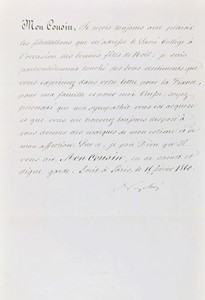 Mon Cousin, Je reçois toujours avec plaisir
les félicitations que m'adresse le Sacré Collège à
l'occasion des bonnes fêtes de Noël. Je suis
particulièrement touché des bons sentiments que
vous exprimez dans votre lettre pour la France,
pour ma famille et pour moi. Aussi, soyez
persuadé que ma sympathie vous est acquise et
que vous me trouverez toujours disposé à
vous donner des marques de mon estime et de
mon affection. Sur ce, je prie Dieu qu'Il
vous ait, Mon Cousin, en sa sainte et
digne garde. Écrit à Paris, le février 186